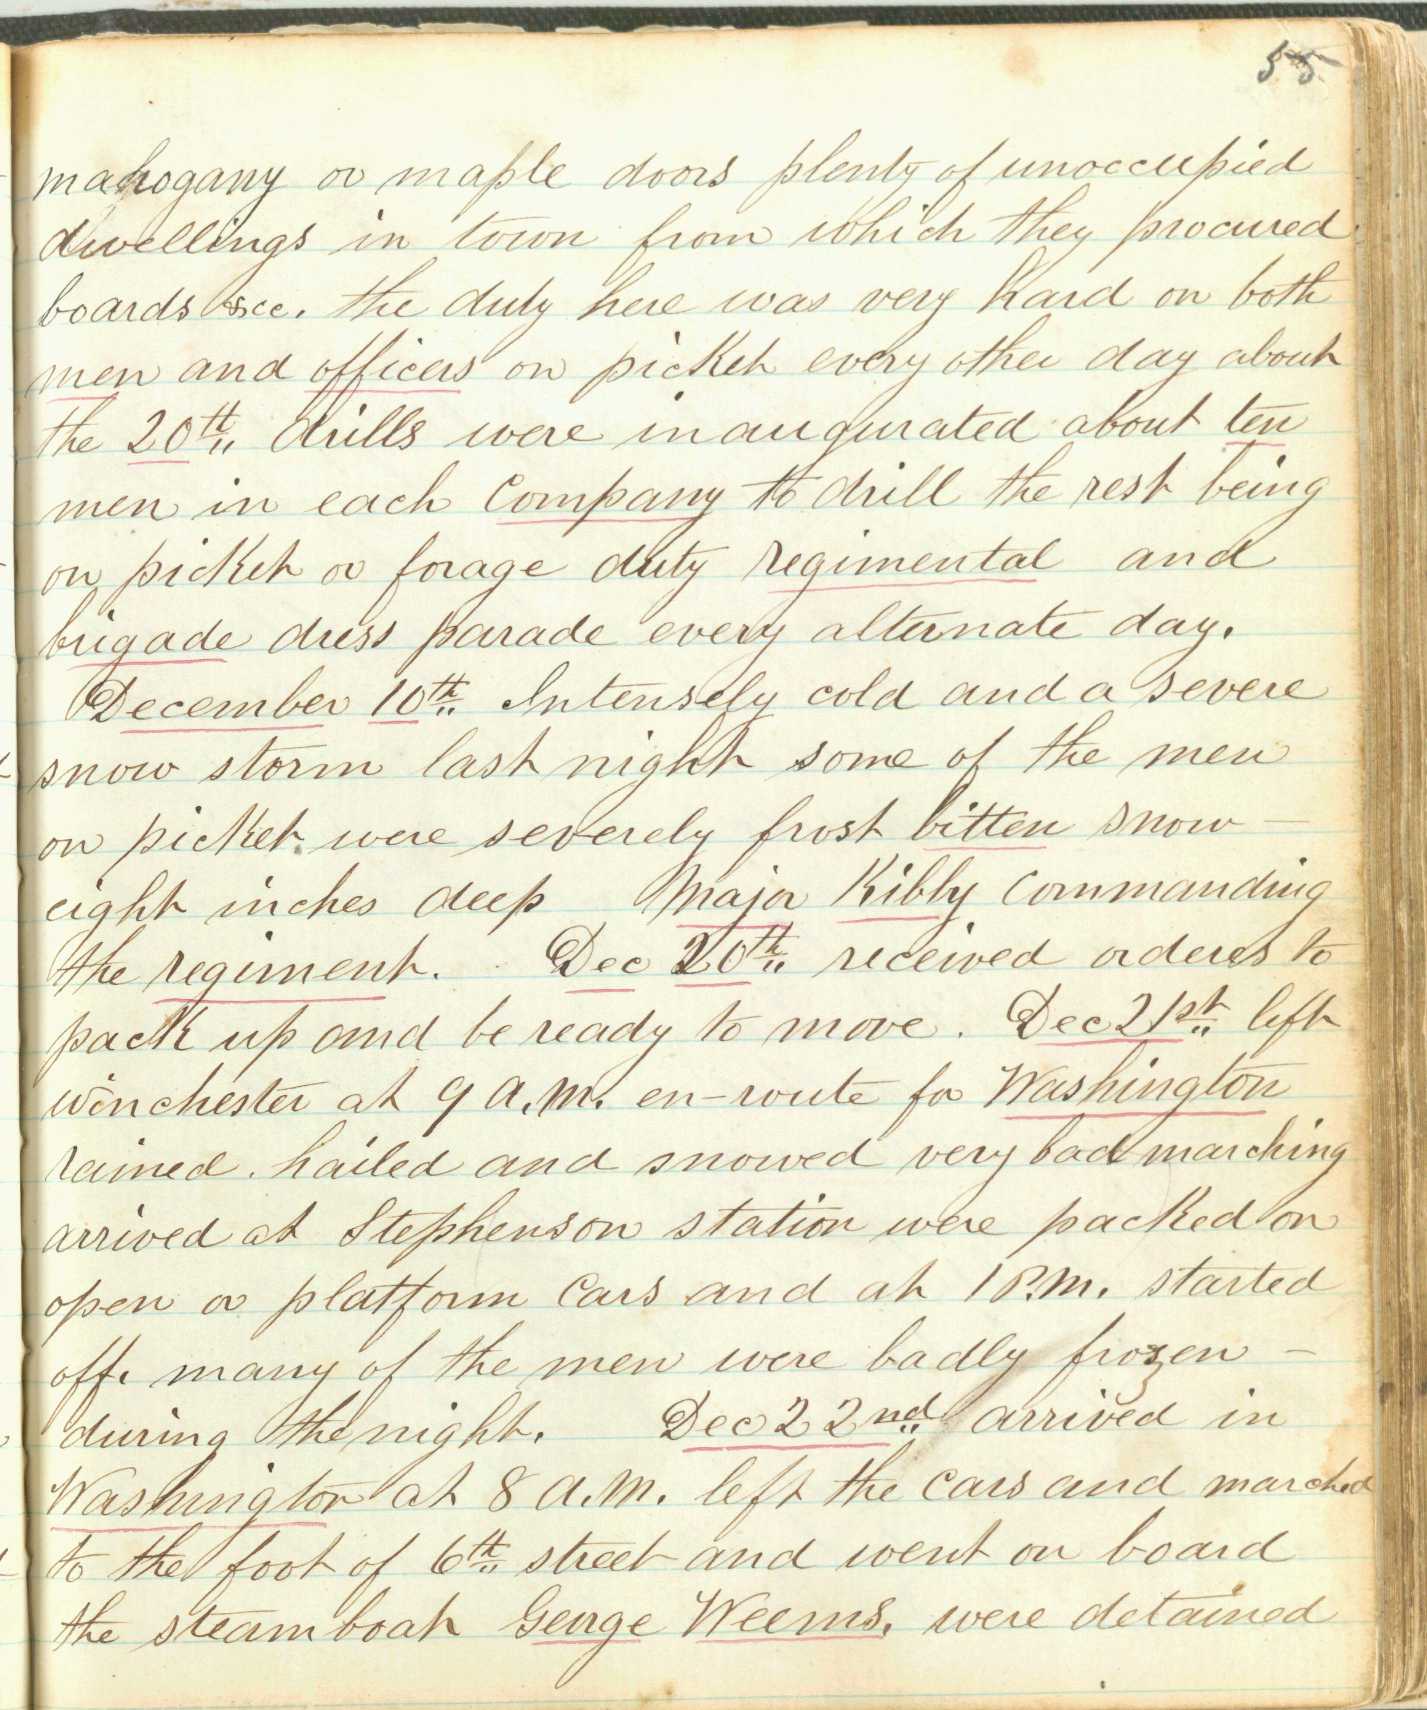 55
mahogany or maple doors plenty of unoccupied
dwellings in town from which they procured
boards &cc. the duty here was very hard on both
men and officers on picket every other day about
the 20th drills were inaugurated about ten
men in each Company to drill the rest being
on picket or forage duty regimental and
brigade dress parade every alternate day.
December 10th Intensely cold and a severe
snow storm last night some of the men
on picket were severely frost bitten snow –
eight inches deep Major Kibly Commanding
the regiment. Dec 20th received orderes to
pack up and be ready to move. Dec 21st left
winchester at 9 A.M. en-route for Washington
rained. hailed and snowed very bad marching
arrived at Stephenson station were packed on
open or platform Cars and at 1 P.M. started
off. many of the men were badly frozen –
during the night. Dec 22nd arrived in
Washington at 8 A.M. left the Cars and marched
to the foot of 6th street and went on board
the steamboat George Weems. were detained